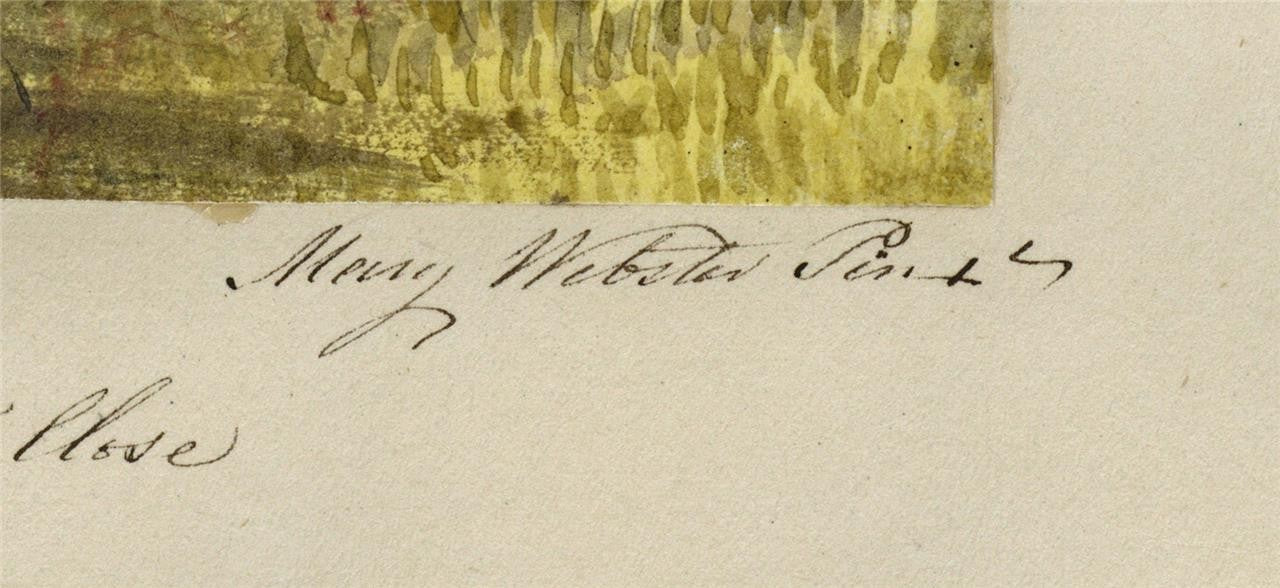 Mary Webster Pinxt
Close